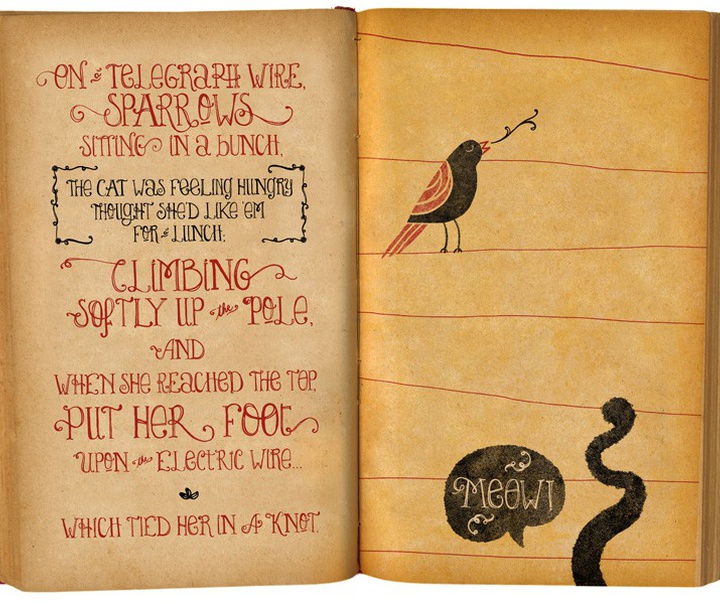 ON a TELEGRAPH WIRE,
SPARROWS
SITTING IN A BUNCH,
THE CAT WAS FEELING HUNGRY
THOUGHT SHE'D LIKE 'EM
FOR LUNCH;
CLIMBING
SOFTLY UP the POLE,
AND
WHEN SHE REACHED THE TOP,
PUT HER FOOT
UPON the ELECTRIC WIRE...
WHICH TIED HER IN A KNOT.
MEOW!